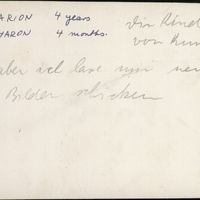 ARION 4 years
HARON 4 months.
die Kind
von
aber ich lase mir neu
Bilder schicken